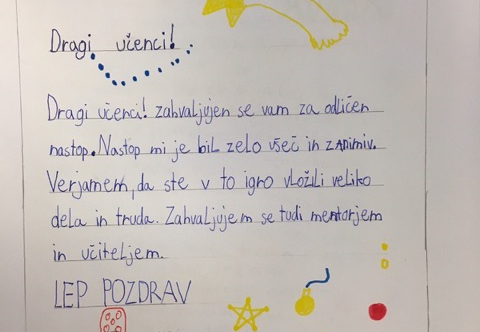 Dragi učenci!
Dragi učenci! zahvaljujen se vam za odličen
nastop. Nastop mi je bil zelo všeč in zanimiv.
Verjamem, da ste v to igro vložili veliko
dela in truda. Zahvaljujem se tudi mentorjem
in učiteljem.
LEP POZDRAV